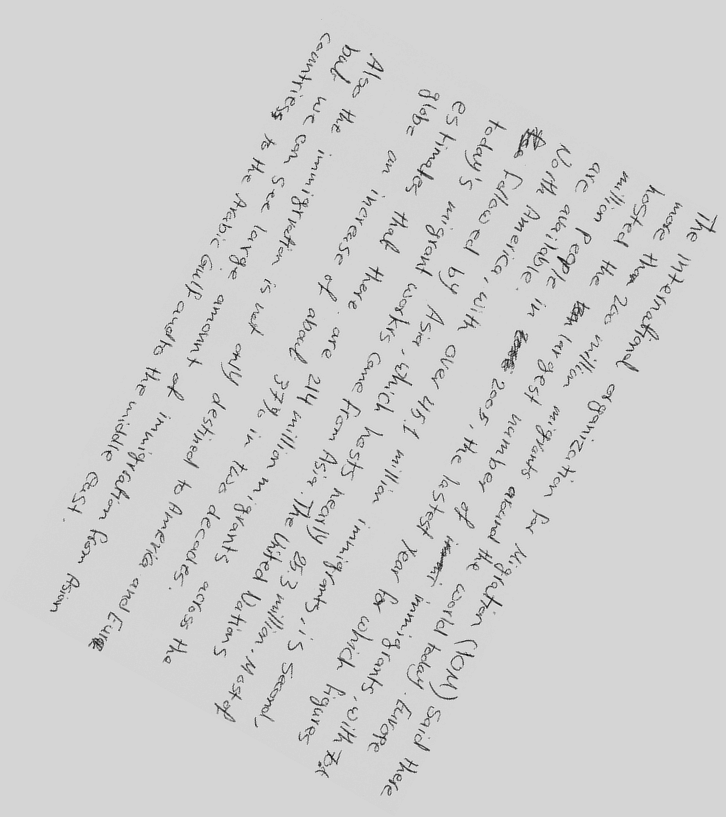 The International organization for Migration (IOM) Said there
more than 200 million migrants around the world today. Europe
hosted the largest number of immigrants, with 7.?
million People in 2005, the lastest year for which figures
are available.
North America, with over 45.1 million immigrants, is second,
Followed by Asia, which hosts nearly 25.3 million. Most of
today's migrant workrs came from Asia The United Nations
estimates that there are 214 million migrants across the
globe an increase of about 37% in two decades.
Also the immigration is not only destined to America and Europe
but we can see large amount of immigration from Asian
countries to the Arabic Gulf and to the middle east.